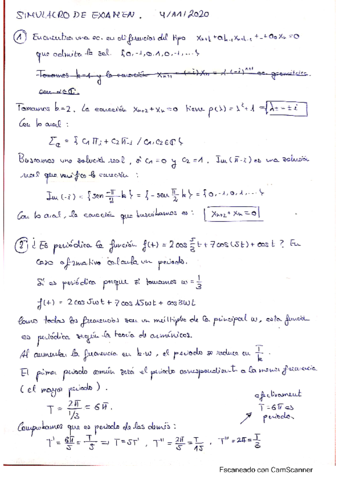 SIMULACRO DE EXAMEN. 4/11/2020
① Encuentra una ec. en diferencias del tipo x_{n+k} + a_{k-1} x_{n+k-1} + ... + a_0 x_n = 0
que admita la sol. {0,-1,0,1,0,-1,...}
Tomamos k=1 y la ecuación
Tomamos k=2. La ecuación x_{n+2} + x_n = 0 tiene p(λ) = λ² + 1 = λ = ± i
Con lo cual:
Buscamos una solución real, si C1 = 0 y C2 = 1. Im(π-i) es una solución
real que verifica la ecuación:
Im(-i) = {sen -π/2 k} = {-sen π/2 k} = {0,-1,0,1,...}
Con lo cual, la ecuación que buscábamos es: x_{n+2} + x_n = 0
② ¿Es periódica la función f(t) = 2cos 5/3 t + 7cos(5t) + cos t? En
caso afirmativo calcula un periodo.
Sí es periódica porque si tomamos w = 1/3
f(t) = 2cos 5wt + 7cos 15wt + cos 3wt
Como todas las frecuencias son un múltiplo de la principal w, esta función
es periódica según la teoría de armónicos.
Al aumentar la frecuencia en k·w, el periodo se reduce en T/k.
El primer periodo común será el periodo correspondiente a la menor frecuencia
(el mayor periodo).
efectivamente
T = 2π/1/3 = 6π.
T = 6π es
periodo.
Comprobamos que es periodo de los demás:
T' = 6π/5 = T/5 ⇒ T = 5T', T'' = 2π/5 = T/15, T''' = 2π = T/3
Escaneado con CamScanner